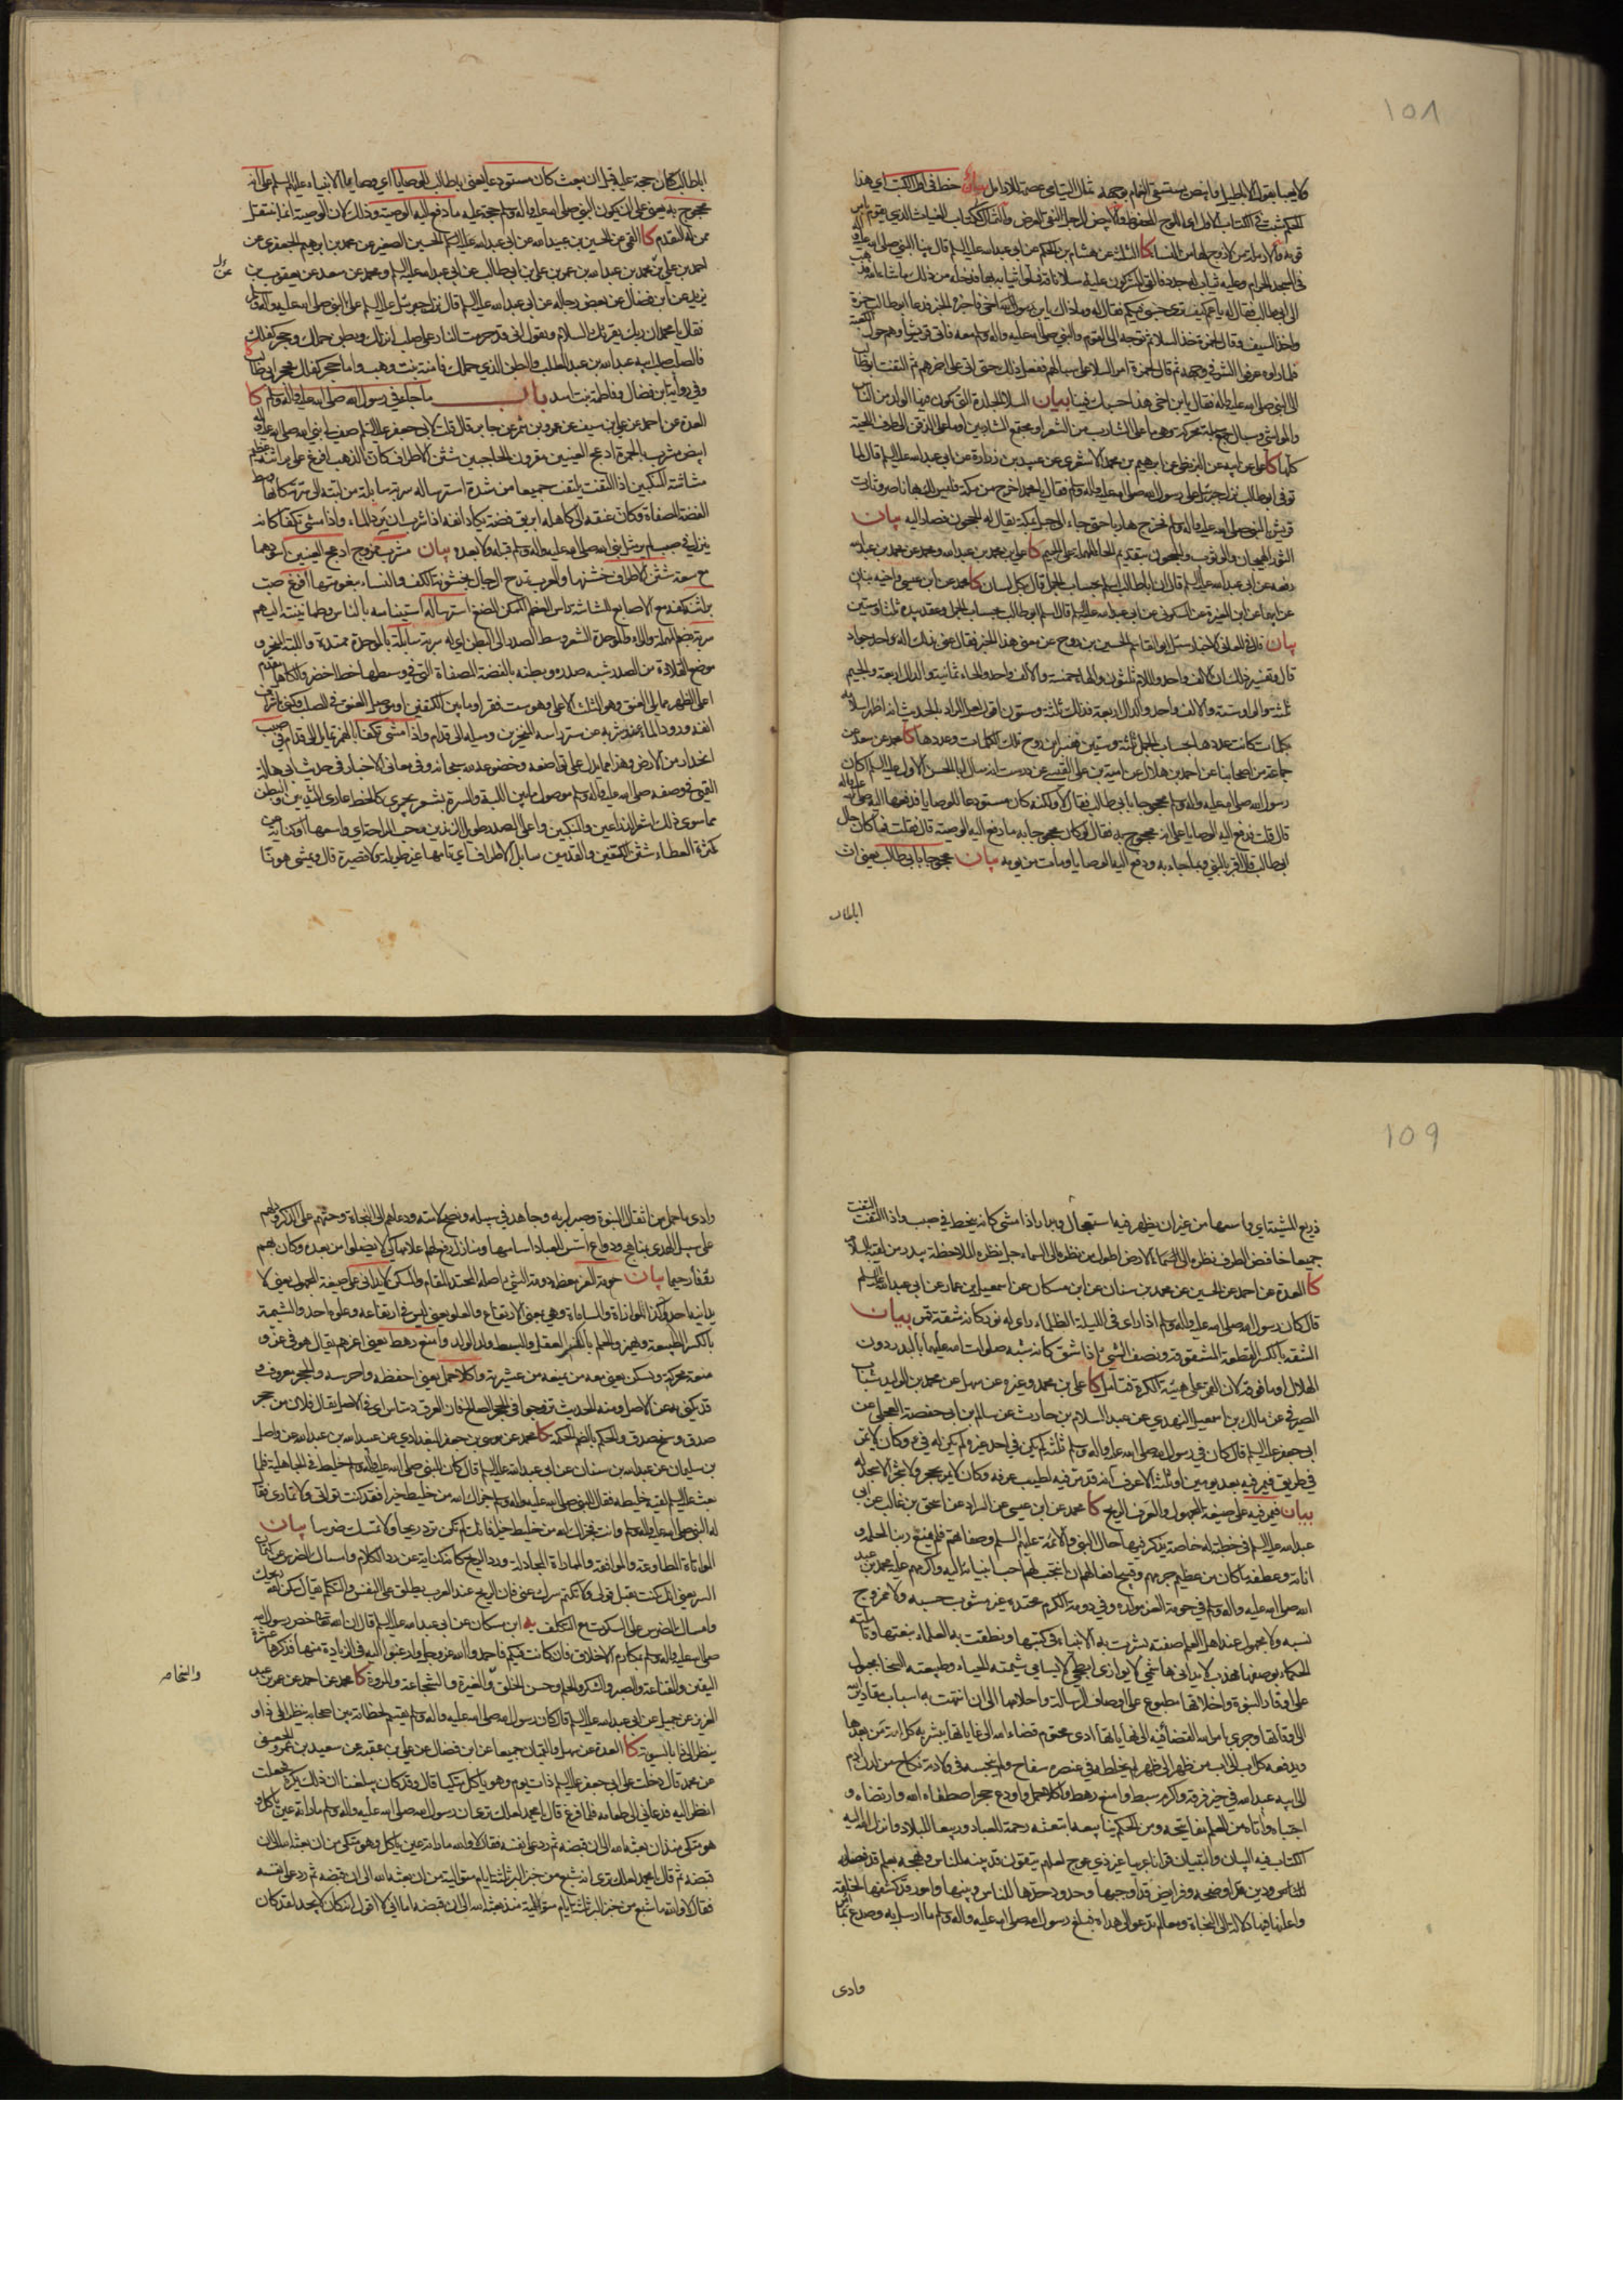 ١٥٨
ولا يعبأ بقول الأباطل وأبيض يستسقى الغمام بوجهه ثمال اليتامى عصمة للأرامل بيان خط في أول الكتب أي هذا
الحكم مثبت في الكتاب الأول أي اللوح المحفوظ والأبيض الرجل النقي العرض والثمال ككتاب الغياث الذي يقوم بأمر
قومه والأرملة من لا زوج لها من النساء كا الثلثة عن هشام بن الحكم عن أبي عبد الله عليه السلم قال بينا النبي صلى الله عليه وآله
في المسجد الحرام وعليه ثياب له جدد فألقى المشركون عليه سلا ناقة فملوا ثيابه بها فدخله من ذلك ما شاء الله فذهب
إلى أبي طالب فقال له يا عم كيف ترى حسبي فيكم فقال له وما ذاك يا ابن أخي فأخبره الخبر فدعا أبو طالب حمزة
وأخذ السيف وقال لحمزة خذ السلا ثم توجه إلى القوم والنبي صلى الله عليه وآله معه فأتى قريشا وهم حول الكعبة
فلما رأوه عرفوا الشر في وجهه ثم قال لحمزة أمر السلا على سبالهم ففعل ذلك حتى أتى على آخرهم ثم التفت أبو طالب
إلى النبي صلى الله عليه وآله فقال يا ابن أخي هذا حسبك فينا بيان السلا الجلدة التي يكون فيها الولد من الناس
والمواشي وسبال جمع سبلة محركة وهي ما على الشارب من الشعر أو مجتمع الشاربين أو ما على الذقن إلى طرف اللحية
كلها كا علي عن أبيه عن البزنطي عن إبراهيم بن محمد الأشعري عن عبيد بن زرارة عن أبي عبد الله عليه السلم قال لما
توفي أبو طالب نزل جبرئيل على رسول الله صلى الله عليه وآله وسلم فقال يا محمد اخرج من مكة فليس لك بها ناصر وثارت
قريش بالنبي صلى الله عليه وآله فخرج هاربا حتى جاء إلى جبل بمكة يقال له الحجون فصار إليه بيان
الثور الهيجان والوثوب والحجون بتقديم الحاء المهملة على الجيم كا علي بن محمد بن عبد الله ومحمد عن محمد بن عبد الله
رفعه عن أبي عبد الله عليه السلم قال إن أبا طالب أسلم بحساب الجمل قال بكل لسان كا محمد عن ابن عيسى وأخيه بنان
عن أبيهما عن ابن المغيرة عن السكوني عن أبي عبد الله عليه السلم قال أسلم أبو طالب بحساب الجمل وعقد بيده ثلثا وستين
بيان قال في المعاني الأخبار سئل أبو القاسم الحسين بن روح عن معنى هذا الخبر فقال عنى بذلك إله أحد جواد
قال وتفسير ذلك أن الألف واحد واللام ثلثون والهاء خمسة والألف واحد والحاء ثمانية والدال أربعة والجيم
ثلثة والواو ستة والألف واحد والدال أربعة فذلك ثلثة وستون أقول لعل المراد بالحديث أنه أظهر إسلامه
بكلمات كانت عددها بحساب الجمل ثلثة وستين ففسر ابن روح تلك الكلمات وعددها كا محمد عن سعد عن
جماعة من أصحابنا عن أحمد بن هلال عن أمية بن علي القيسي عن درست أنه سأل أبا الحسن الأول عليه السلم أكان
رسول الله صلى الله عليه وآله وسلم محجوجا بأبي طالب فقال لا ولكنه كان مستودعا للوصايا فدفعها إليه صلى الله عليه وآله
قال قلت فدفع إليه الوصايا على أنه محجوج به فقال لو كان محجوجا به ما دفع إليه الوصية قال فقلت فما كان حال
أبي طالب قال أقر بالنبي وبما جاء به ودفع إليه الوصايا ومات من يومه بيان محجوجا بأبي طالب يعني أن
أبا طالب
أبا طالب كان حجة عليه قبل أن يبعث كان مستودعا يعني أبا طالب للوصايا أي وصايا الأنبياء عليهم السلم على أنه
محجوج به يعني على أن يكون النبي صلى الله عليه وآله وسلم حجة عليه ما دفع إليه الوصية وذلك لأن الوصية إنما تنتقل
ممن له التقدم كا القمي عن الحسين بن عبيد الله عن أبي عبد الله الحسين الصغير عن محمد بن إبراهيم الجعفري عن
أحمد بن علي بن محمد بن عبد الله بن عمر بن علي بن أبي طالب عن أبي عبد الله عليه السلم ومحمد عن سعد عن يعقوب بن
يزيد عن ابن فضال عن بعض رجاله عن أبي عبد الله عليه السلم قال نزل جبرئيل عليه السلم على النبي صلى الله عليه وآله وسلم
فقال يا محمد إن ربك يقرئك السلام ويقول إني قد حرمت النار على صلب أنزلك وبطن حملك وحجر كفلك
فالصلب صلب أبيه عبد الله بن عبد المطلب والبطن الذي حملك فآمنة بنت وهب وأما حجر كفلك فحجر أبي طالب
وفي رواية ابن فضال وفاطمة بنت أسد باب ما جاء في رسول الله صلى الله عليه وآله وسلم كا
العدة عن أحمد عن علي بن سيف عن عمرو بن شمر عن جابر قال قلت لأبي جعفر عليه السلم صف لي نبي الله صلى الله عليه وآله
أبيض مشرب بالحمرة أدعج العينين مقرون الحاجبين شثن الأطراف كأن الذهب أفرغ على براثنه عظيم
مشاشة المنكبين إذا التفت يلتفت جميعا من شدة استرساله سربة سايلة من لبته إلى سرته كأنها وسط
الفضة المصفاة وكأن عنقه إلى كاهله إبريق فضة يكاد أنفه إذا شرب أن يرد الماء وإذا مشى تكفأ كأنه
ينزل في صبب لم ير مثل نبي الله صلى الله عليه وآله وسلم قبله ولا بعده بيان مشرب ممزوج أدعج العينين أسودهما
مع سعة شثن الأطراف خشنها والعرب تمدح الرجال بخشونة الكف والنساء بنعومتها أفرغ صب
براثنه كفه مع الأصابع المشاشة رأس العظم الممكن المضغ استرساله استيناسه بالناس وطمأنينته إليهم
سربة بضم المهملة والراء والموحدة الشعر وسط الصدر إلى البطن أي له سربة سايلة بالموحدة ممتدة واللبة المنحر و
موضع القلادة من الصدر شبه صدره وبطنه بالفضة المصفاة التي في وسطها خط أخضر والكاهل مقدم
أعلى الظهر مما يلي العنق وهو الثلث الأعلى وهو ست فقر أو ما بين الكتفين أو موصل العنق في الصلب وكنى عن
أنفه ورود الماء عند شربه عن ستر رأسه المنخرين وميله إلى قدام وإذا مشى تكفأ بالهمز تمايل إلى قدام في صبب
انحدار من الأرض وهذا مما يدل على تواضعه وخضوعه لله سبحانه وفي معاني الأخبار في حديث أبي هالة
التميمي في وصفه صلى الله عليه وآله وسلم موصول ما بين اللبة والسرة بشعر يجري كالخط عاري الثديين والبطن
مما سوى ذلك أشعر الذراعين والمنكبين وأعلى الصدر طويل الزندين رحب الراحة أي واسعها أو كناية عن
كثرة العطاء شثن الكفين والقدمين سايل الأطراف أي تامها غير طويلة ولا قصيرة قال ويمشي هونا
١٥٩
ذريع المشية أي واسعها من غير أن يظهر فيه استعجال وبدار إذا مشى كأنه ينحط في صبب وإذا التفت التفت
جميعا خافض الطرف نظره إلى الأرض أطول من نظره إلى السماء جل نظره الملاحظة يبدر من لقيه بالسلام
كا العدة عن أحمد عن الحسين عن محمد بن سنان عن ابن مسكان عن إسمعيل بن عمار عن أبي عبد الله عليه السلم
قال كان رسول الله صلى الله عليه وآله وسلم إذا رأى في الليلة الظلماء رأى له نور كأنه شقة قمر بيان
الشقة بالكسر القطعة المشقوقة ونصف الشيء إذا شق كأنه شبه صلوات الله عليه بالبدر دون
الهلال أو ما فوقه لأن القمر على هيئة الكرة فتأمل كا علي بن محمد وغيره عن سهل عن محمد بن الوليد شباب
الصيرفي عن مالك بن إسمعيل النهدي عن عبد السلام بن حارث عن سالم بن أبي حفصة العجلي عن
أبي جعفر عليه السلم قال كان في رسول الله صلى الله عليه وآله وسلم ثلثة لم يكن في أحد غيره لم يكن له فيء وكان لا يمر
في طريق فيمر فيه بعد يومين أو ثلثة إلا عرف أنه قد مر فيه لطيب عرفه وكان لا يمر بحجر ولا شجر إلا سجد له
بيان فيمر فيه على صيغة المجهول والعرف الريح كا محمد عن ابن عيسى عن السراد عن إسحق بن غالب عن أبي
عبد الله عليه السلم في خطبة له خاصة يذكر فيها حال النبي والأئمة عليهم السلم وصفاتهم فلم يمنع ربنا لحلمه و
أناته وعطفه ما كان من عظيم جرمهم وقبيح أفعالهم أن انتجب لهم أحب أنبيائه إليه وأكرمهم عليه محمد بن عبد
الله صلى الله عليه وآله وسلم في حومة العز مولده وفي دومة الكرم محتده غير مشوب حسبه ولا ممزوج
نسبه ولا مجهول عند أهل العلم صفته بشرت به الأنبياء في كتبها ونطقت به العلماء بنعتها وتأملته
الحكماء بوصفها مهذب لا يدانى هاشمي لا يوازى أبطحي لا يسامى شيمته الحياء وطبيعته السخاء مجبول
على أوقار النبوة وأخلاقها مطبوع على أوصاف الرسالة وأحلامها إلى أن انتهت به أسباب مقادير الله
إلى أوقاتها وجرى بأمر الله القضاء فيه إلى نهاياتها أدى محتوم قضاء الله إلى غاياتها يبشر به كل أمة من بعدها
ويدفعه كل أب إلى أب من ظهر إلى ظهر لم يخلطه في عنصره سفاح ولم ينجسه في ولادته نكاح من لدن آدم
إلى أبيه عبد الله في خير فرقة وأكرم سبط وأمنع رهط وأكلأ حمل وأودع حجر اصطفاه الله وارتضاه و
اجتباه وآتاه من العلم مفاتيحه ومن الحكم ينابيعه ابتعثه رحمة للعباد وربيعا للبلاد وأنزل الله إليه
الكتاب فيه البيان والتبيان قرآنا عربيا غير ذي عوج لعلهم يتقون قد بينه للناس ونهجه بعلم قد فصله
للناس ودين قد أوضحه وفرايض قد أوجبها وحدود حدها للناس وبينها وأمور قد كشفها لخلقه
وأعلنها فيها دلالة إلى النجاة ومعالم تدعو إلى هداه فبلغ رسول الله صلى الله عليه وآله وسلم ما أرسل به وصدع بما أمر
وأدى
وأدى ما حمل من أثقال النبوة وصبر لربه وجاهد في سبيله ونصح لأمته ودعاهم إلى النجاة وحثهم على الذكر ودلهم
على سبيل الهدى بمناهج ودواع أسس للعباد أساسها ومنازل رفع لهم أعلامها كي لا يضلوا من بعده وكان بهم
رؤفا رحيما بيان حومة العز معظمه دومة الشيء أصله المحتد المقام والمسكن لا يدانى على صيغة المجهول يعني لا
يدانيه أحد وكذا الموازاة والمساماة وهي بمعنى الارتفاع والعلو يعني ليس في ارتفاعه وعلوه أحد والشيمة
بالكسر الطبيعة ويهمز والحلم بالكسر العقل والسبط ولد الولد وأمنع رهط يعني أعزهم يقال هو في عز و
منعة محركة ويسكن يعني معه من يمنعه من عشيرته وأكلأ حمل يعني أحفظه وأحرسه والحجر معروف و
قد يكنى به عن الأصل ومنه الحديث تزوجوا في الحجر الصالح فإن العرق دساس أي في الأصل يقال فلان من حجر
صدق وسنخ صدق والحكم بالضم الحكمة كا محمد عن موسى بن جعفر البغدادي عن عبيد الله بن عبد الله عن واصل
بن سليمان عن عبد الله بن سنان عن أبي عبد الله عليه السلم قال كان للنبي صلى الله عليه وآله وسلم خليط في الجاهلية فلما
بعث عليه السلم لقيه خليطه فقال للنبي صلى الله عليه وآله وسلم جزاك الله من خليط خيرا فقد كنت تواتي ولا تماري فقال
له النبي صلى الله عليه وآله وسلم وأنت فجزاك الله من خليط خيرا فإنك لم تكن ترد ريحا ولا تمسك ضرسا بيان
المواتاة المطاوعة والموافقة والمماراة المجادلة ورد الريح كأنه كناية عن رد الكلام وإمساك الضرس عن كتمان
السر يعني إنك كنت تقبل قولي ولا تكتم سرك عني فإن الريح عند العرب يطلق على النفس والتكلم يقال سكن ريحك
وإمساك الضرس على السكوت مع التكلف يه ابن مسكان عن أبي عبد الله عليه السلم قال إن الله تعالى خص رسول الله
صلى الله عليه وآله وسلم بمكارم الأخلاق فإن كانت فيكم فاحمدوا الله عز وجل وارغبوا إليه في الزيادة منها فذكرها عشرة
اليقين والقناعة والصبر والشكر والحلم وحسن الخلق والغيرة والشجاعة والمروة كا محمد عن أحمد عن عمر بن عبد
والسخاء
العزيز عن جميل عن أبي عبد الله عليه السلم قال كان رسول الله صلى الله عليه وآله وسلم يقسم لحظاته بين أصحابه ينظر إلى ذا و
ينظر إلى ذا بالسوية كا العدة عن سهل والقميان جميعا عن ابن فضال عن علي بن عقبة عن سعيد بن عمرو الجعفي
عن محمد قال دخلت على أبي جعفر عليه السلم ذات يوم وهو يأكل متكيا قال وقد كان يبلغنا أن ذلك يكره فجعلت
أنظر إليه فدعاني إلى طعامه فلما فرغ قال يا محمد لعلك ترى أن رسول الله صلى الله عليه وآله وسلم ما رأته عين يأكل و
هو متكئ منذ أن بعثه الله إلى أن قبضه ثم رد على نفسه فقال لا والله ما رأته عين يأكل وهو متكئ من أن بعثه الله إلى أن
قبضه ثم قال يا محمد لعلك ترى أنه شبع من خبز البر ثلثة أيام متوالية من أن بعثه الله إلى أن قبضه ثم رد على نفسه
فقال لا والله ما شبع من خبز البر ثلثة أيام متوالية منذ بعثه الله إلى أن قبضه أما إني لا أقول إنه كان لا يجد لقد كان